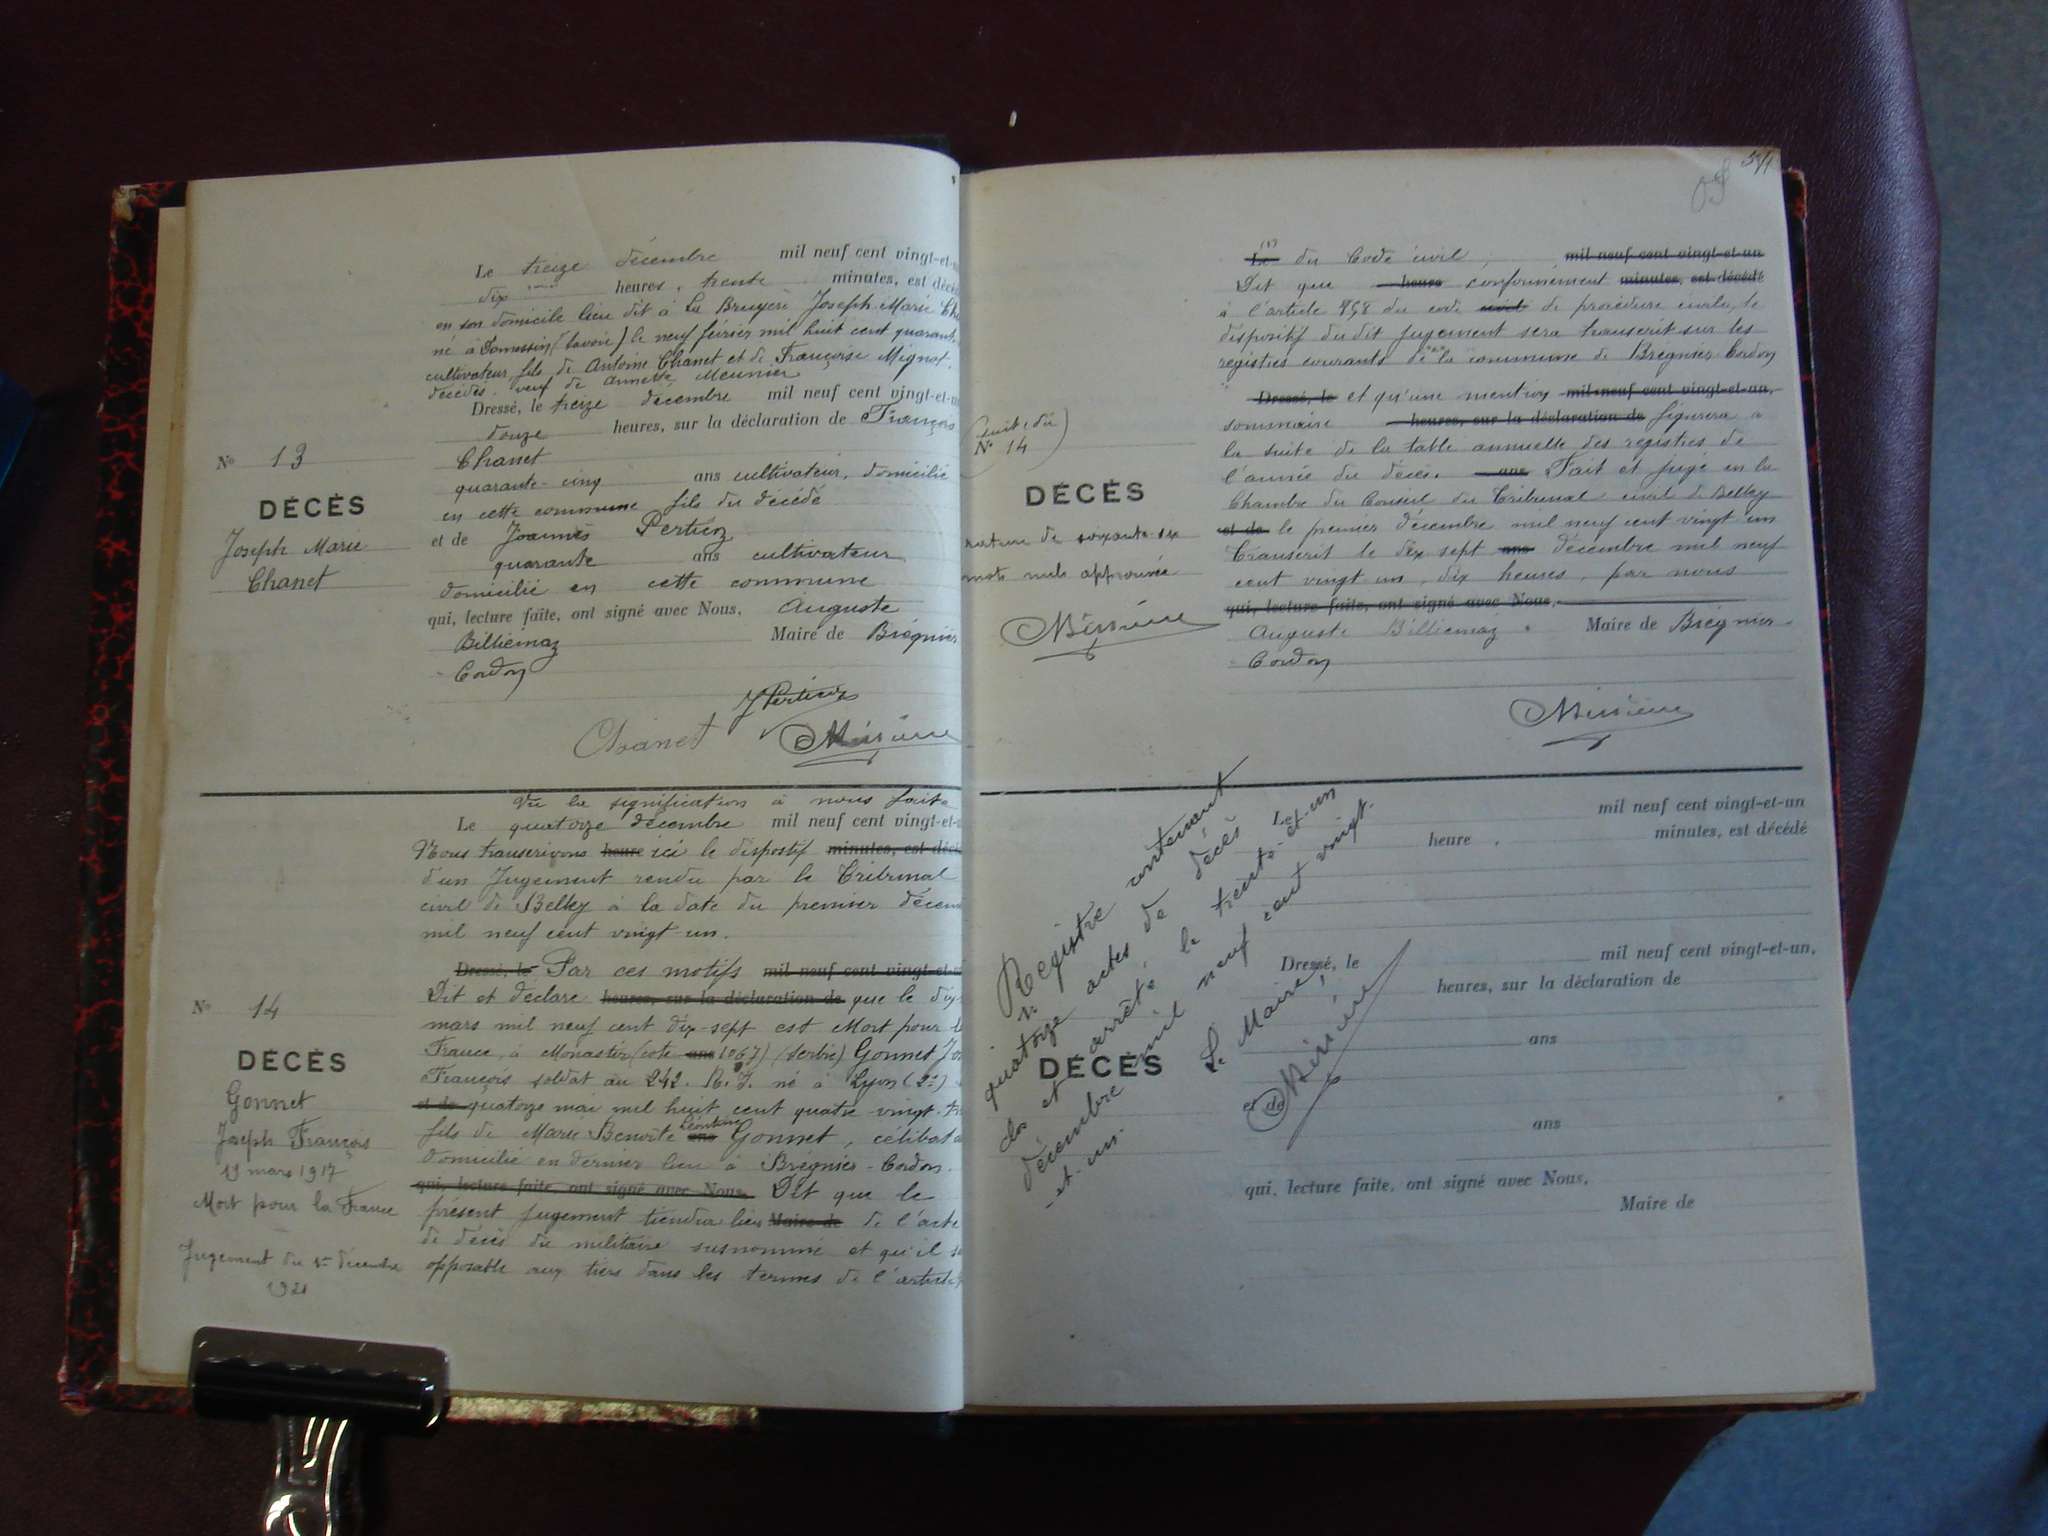 Le treize décembre mil neuf cent vingt-et-
dix heures, trente minutes, est décé
en son domicile lieu dit à La Bruyère Joseph Marie Cha
né à Domessin (Savoie) le neuf février mil huit cent quarante
cultivateur, fils de Antoine Chanet et de Françoise Mignot,
décédés, veuf de Annette Meunier
Dressé, le treize décembre mil neuf cent vingt-et-u
douze heures, sur la déclaration de François
N° 13
Chanet
quarante-cinq ans cultivateur, domicilié
DÉCÈS
en cette commune fils du décédé
Joseph Marie
et de Joannès Pertiez
Chanet
quarante ans cultivateur
domicilié en cette commune
qui, lecture faite, ont signé avec Nous, Auguste
Billiemaz Maire de Brégnier
Cordon
Chanet
Vu la signification à nous faite
Le quatorze décembre mil neuf cent vingt-et-u
Nous transcrivons heure ici le dispostif minutes, est décé
d'un Jugement rendu par le Tribunal
civil de Belley à la date du premier décem
mil neuf cent vingt-un.
Dressé, le Par ces motifs mil neuf cent vingt-et-
Dit et déclare heures, sur la déclaration de que le dix
N° 14
mars mil neuf cent dix-sept est Mort pour l
France, à Monastir (cote ans 1067) (Serbie) Gonnet Jo
DÉCÈS
François soldat au 242. R. I. né à Lyon (2e)
Gonnet
et de quatorze mai mil huit cent quatre-vingt-t
Joseph François
fils de Marie Benoîte Léontine ans Gonnet, célibata
19 mars 1917
domicilié en dernier lieu à Brégnier-Cordon.
Mort pour la France
qui, lecture faite, ont signé avec Nous, Dit que le
présent Jugement tiendra lieu Maire de de l'acte
Jugement du 1er décembre
1921
de décès du militaire susnommé et qu'il s
opposable aux tiers dans les termes de l'article
Le du Code civil, mil neuf cent vingt-et-un
Dit que heure conformément minutes, est décédé
à l'article 858 du code civil de procédure civile, le
dispositif du dit Jugement sera transcrit sur les
registres courants de la commune de Brégnier-Cordon
Dressé, le et qu'une mention mil neuf cent vingt-et-un,
sommaire heures, sur la déclaration de figurera à
(suite du
N° 14)
la suite de la table annuelle des registres de
l'année du décès. ans Fait et jugé en la
DÉCÈS
Chambre du Conseil du Tribunal civil de Belley
et de le premier décembre mil neuf cent vingt un
rature de soixante-six
mots nuls approuvée
Transcrit le dix sept ans décembre mil neuf
cent vingt un, dix heures, par nous
qui, lecture faite, ont signé avec Nous,
Auguste Billiemaz Maire de Brégnier-
Cordon
Registre contenant
quatorze actes de décès
clos et arrêté le trente-et-un
décembre mil neuf cent vingt-
-et-un.
Le Maire,
DÉCÈS
Le mil neuf cent vingt-et-un
heure, minutes, est décédé
Dressé, le mil neuf cent vingt-et-un,
heures, sur la déclaration de
ans
et de
ans
qui, lecture faite, ont signé avec Nous,
Maire de